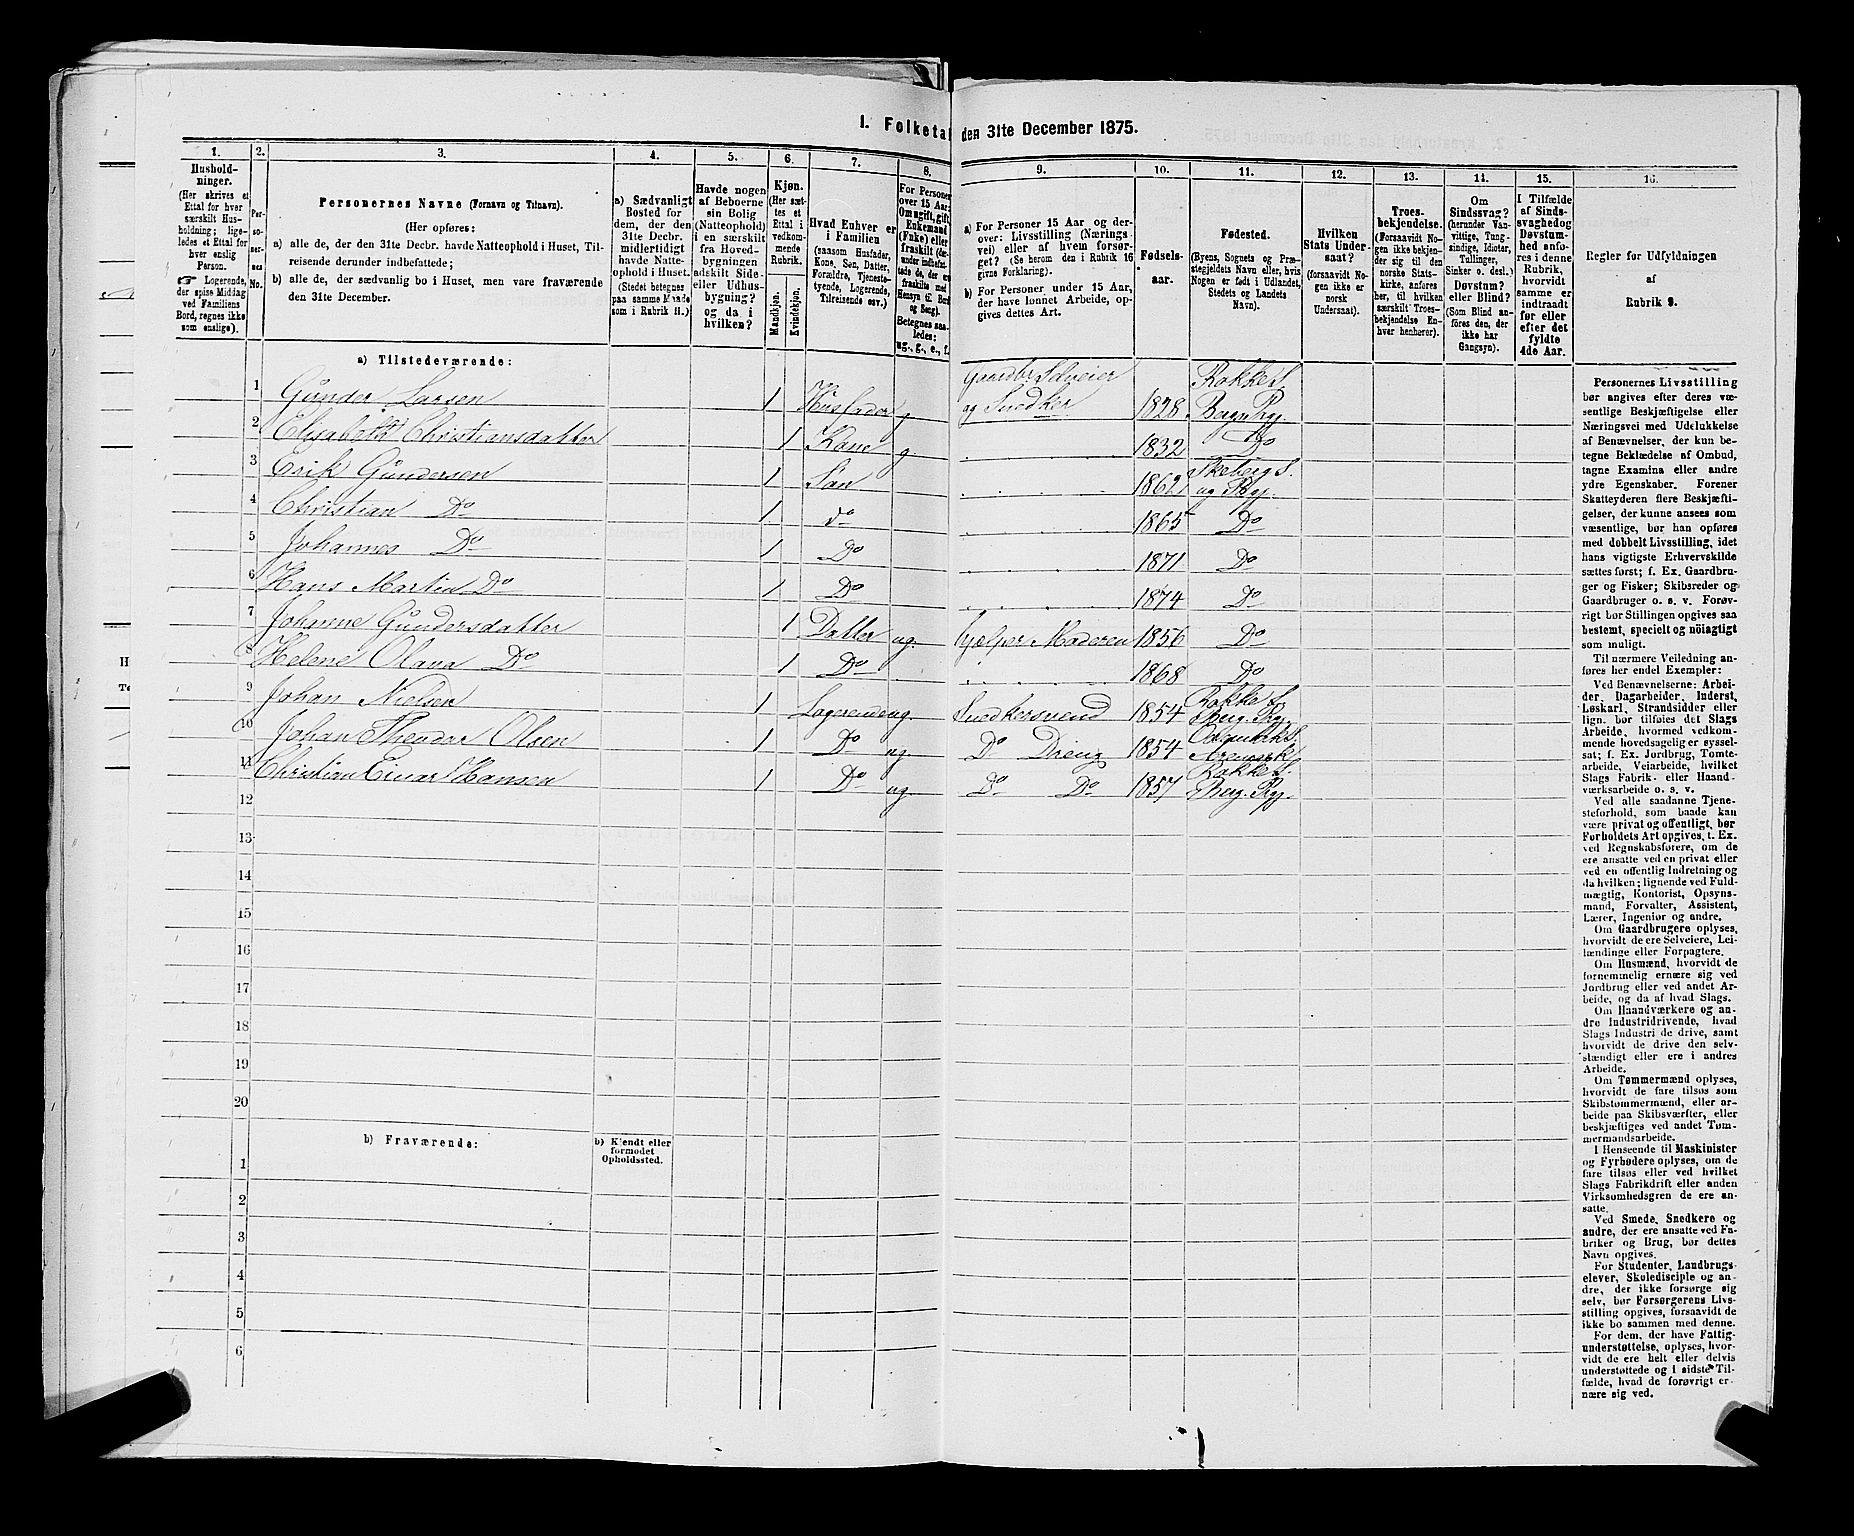 I. Folketal den 31te December 1875.
1. 2. 3. 4. 5. 6. 7. 8. 9. 10. 11. 12. 13. 14. 15. 16.
Hushold-
ninger.
(Her skrives et
Ettal for hver
særskilt Hus-
holdning; lige-
ledes et Ettal for
hver enslig
Person.
☛ Logerende,
der spise Middag
ved Familiens
Bord, regnes ikke
som enslige).
Per-
so-
ner-
nes
No.
Personernes Navne (Fornavn og Tilnavn).
(Her opføres:
a) alle de, der den 31te Decbr. havde Natteophold i Huset, Til-
reisende derunder indbefattede;
b) alle de, der sædvanlig bo i Huset, men vare fraværende
den 31te December.
a) Sædvanligt
Bosted for
dem, der den
31te Decbr.
midlertidigt
havde Natte-
ophold i Huset.
(Stedet betegnes
paa samme Maade
som i Rubrik 11.)
Havde nogen
af Beboerne
sin Bolig
(Natteophold)
i en særskilt
fra Hoved-
bygningen
adskilt Side-
eller Udhus-
bygning?
og da i
hvilken?
Kjøn.
(Her sæt-
tes et
Ettal i
vedkom-
mende
Rubrik.
Mandkjøn.
Kvindekjøn.
Hvad Enhver er
i Familien
(saasom Husfader,
Kone, Søn, Datter,
Forældre, Tjeneste-
tyende, Logerende,
Tilreisende osv.)
For Personer
over 15 Aar:
Om ugift, gift,
Enkemand
(Enke) eller
fraskilt
Betegnes saa-
ledes:
ug., g., e., f.
a) For Personer 15 Aar og der-
over: Livsstilling (Nærings-
vei) eller af hvem forsør-
get? (Se herom den i Rubrik 16
givne Forklaring).
b) For Personer under 15 Aar,
der have lønnet Arbeide, op-
gives dettes Art.
Fødsels-
aar.
Fødested.
(Byens, Sognets og Præ-
stegjeldets Navn eller, hvis
Nogen er født i Udlandet,
Stedets og Landets
Navn).
Hvilken
Stats Under-
saat?
(forsaavidt No-
gen ikke er
norsk
Undersaat).
Troes-
bekjendelse.
(Forsaavidt No-
gen ikke bekjen-
der sig til den
norske Stats-
kirke, anføres
her, til hvilken
særskilt Troes-
bekjendelse En-
hver henhører).
Om
Sindssvag?
(herunder Van-
vittige, Tung-
sindige, Idioter,
Tullinger,
Sinker o. desl.)
Døvstum?
eller Blind?
(Som Blind an-
føres den, der
ikke har
Gangsyn).
I Tilfælde
af Sinds-
svaghed og
Døvstum-
hed anfø-
res i denne
Rubrik,
hvorvidt
samme er
indtraadt
før eller
efter det
fyldte
4de Aar.
Regler for Udfyldningen
af
Rubrik 9.
a) Tilstedeværende:
1 Gunder Larsen 1 Husfader g Gaardbr. Selveier og Snedker 1828 Rokke S. Berg Prgj.
2 Elisabeth Christiansdatter 1 Kone g. 1832 Do
3 Erik Gundersen 1 Søn 1862 Skeberg S. og Prgj.
4 Christian Do 1 do 1865 Do
5 Johannes Do 1 Do 1871 Do
6 Hans Martin Do 1 Do 1874 Do
7 Johanne Gundersdatter 1 Datter ug. hjelper Moderen 1856 Do
8 Helene Olava Do 1 Do 1868 Do
9 Johan Nielsen 1 Logerende ug. Snedkersvend 1854 Rokke S. Berg. Prgj.
10 Johan Theodor Olsen 1 Do ug Do Dreng 1854
11 Christian Einar Hansen 1 Do ug Do Do 1857 Rokke S. Berg. Prgj.
12
13
14
15
16
17
18
19
20
b) Fraværende:
b) Kjendt eller
formodet
Opholdssted.
1
2
3
4
5
6
Personernes Livsstilling
bør angives efter deres væ-
sentlige Beskjæftigelse eller
Næringsvei med Udelukkelse
af Benævnelser, der kun be-
tegne Beklædelse af Ombud,
tagne Examina eller andre
ydre Egenskaber. Forener
Skatteyderen flere Beskjæfti-
gelser, der kunne ansees som
væsentlige, bør han opføres
med dobbelt Livsstilling, idet
hans vigtigste Erhvervskilde
sættes først; f. Ex. Gaardbru-
ger og Fisker; Skibsreder og
Gaardbruger o. s. v. Forøv-
rigt bør Stillingen opgives saa
bestemt, specielt og nöiagtigt
som muligt.
Til nærmere Veiledning an-
føres her endel Exempler:
Ved Benævnelserne: Arbei-
der, Dagarbeider, Inderst,
Løskarl, Strandsidder eller
lign. bør tilføies det Slags
Arbeide, hvormed vedkom-
mende hovedsagelig er syssel-
sat; f. Ex. Jordbrug, Tømte-
arbeide, Veiarbeide, hvilket
Slags Fabrik- eller Haand-
værksarbeide o. s. v.
Ved alle saadanne Tjene-
steforhold, som baade kan
være privat og offentligt, bør
Forholdets Art opgives, t. Ex.
ved Regnskabsførere, om de
ere ansatte ved en privat eller
ved en offentlig Indretning og
da hvilken; lignende ved Fuld-
mægtig, Kontorist, Opsyns-
mand, Forvalter, Assistent,
Lærer, Ingeniør og andre.
Om Gaardbrugere oplyses,
hvorvidt de ere Selveiere, Lei-
lændinge eller Forpagtere.
Om Husmænd, hvorvidt de
fornemmelig ernære sig ved
Jordbrug eller ved andet Ar-
beide, og da af hvad Slags.
Om Haandværkere og an-
dre Industridrivende, hvad
Slags Industri de drive, samt
hvorvidt de drive den selv-
stændigt eller ere i andres
Arbeide.
Om Tømmermænd oplyses,
hvorvidt de fare tilsøs som
Skibstømmermænd, eller ar-
beide paa Skibsværfter, eller
beskjæftiges ved andet Tøm-
mermandsarbeide.
I Henseende til Maskinister
og Fyrbødere oplyses, om de
fare tilsøs eller ved hvilket
Slags Fabrikdrift eller anden
Virksomhedsgren de ere an-
satte.
Ved Smede, Snedkere og
andre, der ere ansatte ved Fa-
briker og Brug, bør dettes
Navn opgives.
For Studenter, Landbrugs-
elever, Skoledisciple og an-
dre, der ikke forsørge sig
selv, bør Forsørgerens Livs-
stilling opgives, forsaavidt de
ikke bo sammen med denne.
For dem, der have Fattig-
understøttelse, oplyses, hvor-
vidt de ere helt eller delvis
understøttede og i sidste Til-
fælde, hvad de forøvrigt er-
nære sig ved.